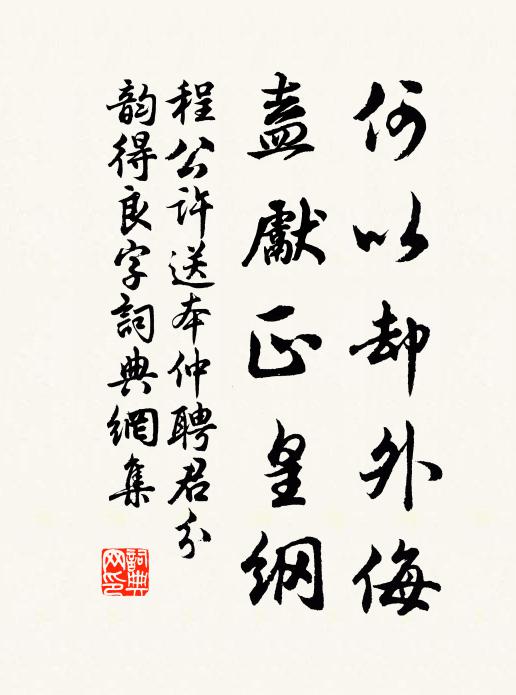 何以却外侮
盍獻正皇綱
程公許送李仲聘君分
韵得良字詞典網集
詞典
网印